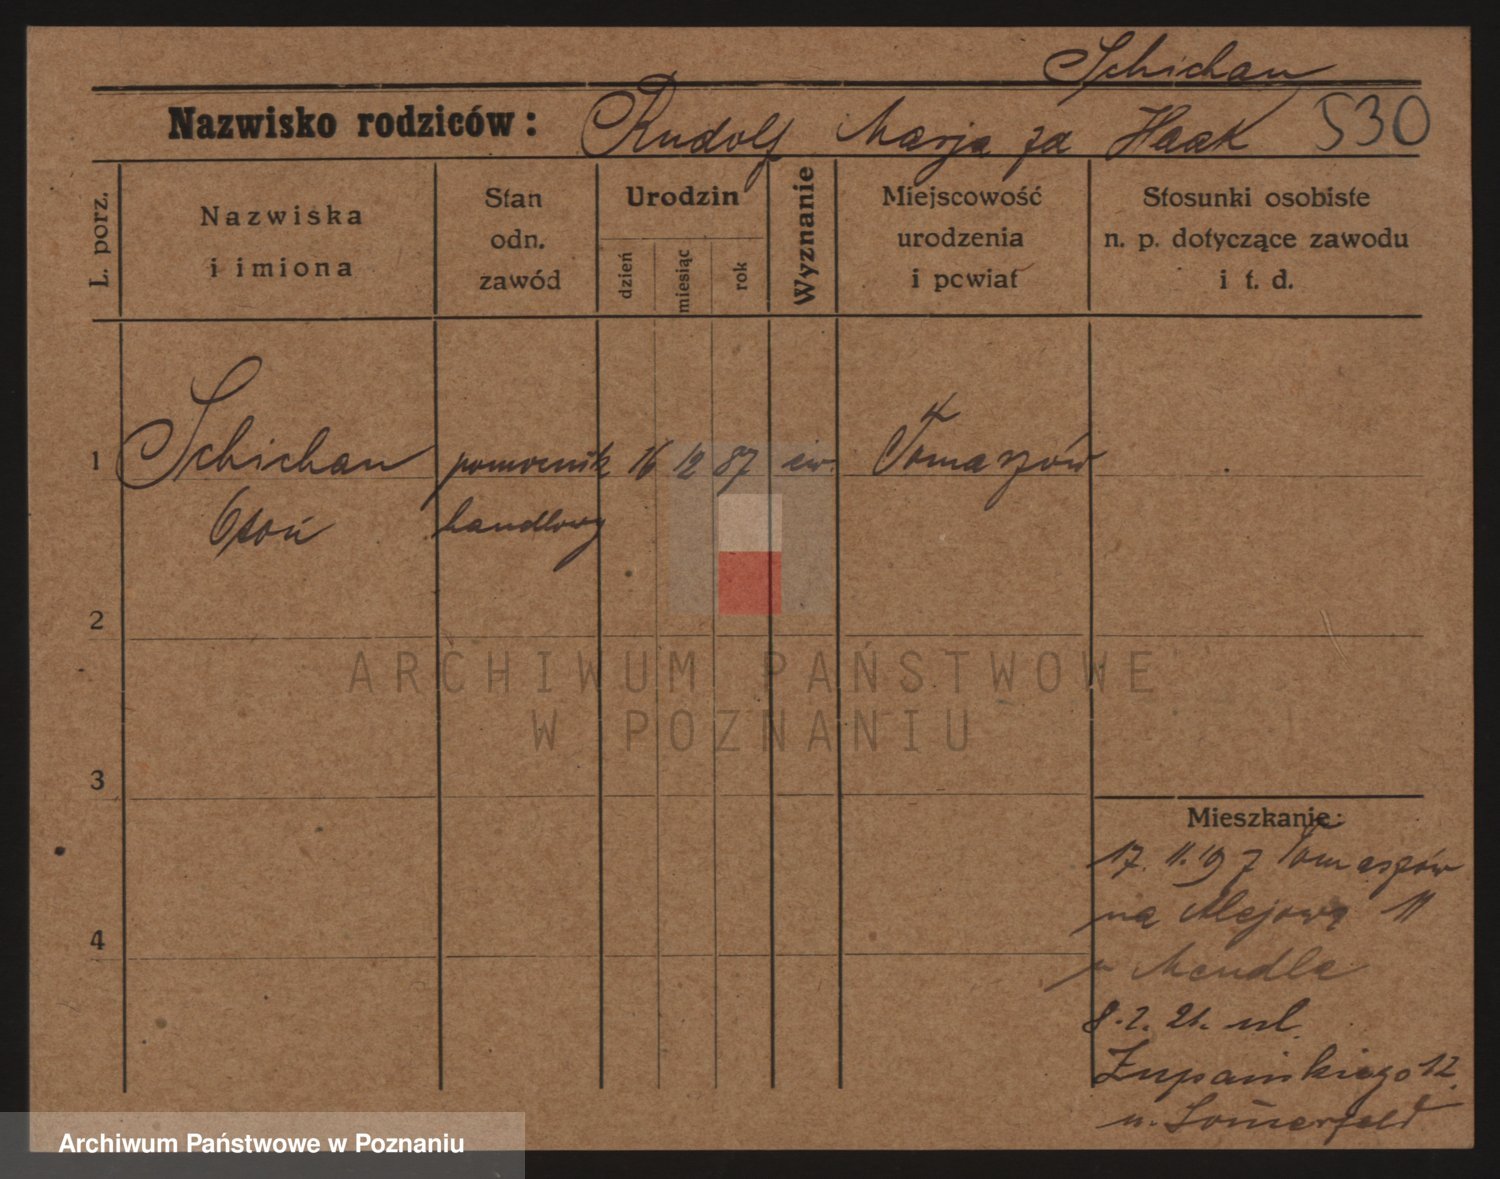 Schichan
Nazwisko rodziców: Rudolf Marja za Haak 530
L. porz.
Nazwiska
i imiona
Stan
odn.
zawód
Urodzin
dzień
miesiąc
rok
Wyznanie
Miejscowość
urodzenia
i powiat
Stosunki osobiste
n. p. dotyczące zawodu
i t. d.
1 Schichan pomocnik 16 12 87 ew. Tomaszów
handlowy
2
3
4
Mieszkanie:
17. 11. 19 z Tomaszów
na Alejową 11
Mendla
8. 2. 21. ul.
Żupańskiego 12.
u. Somerfeld
ARCHIWUM PAŃSTWOWE
W POZNANIU
Archiwum Państwowe w Poznaniu